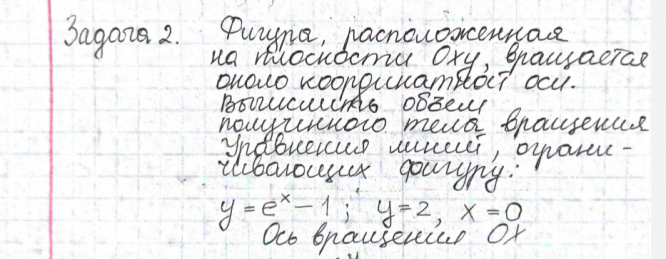 Задача 2. Фигура, расположенная
на плоскости Оху, вращается
около координатной оси.
Вычислить объем
полученного тела вращения
Уравнения линий, ограни-
чивающих фигуру:
y=eˣ-1; y=2, x=0
Ось вращения Ох